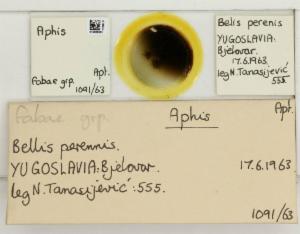 Aphis
Fabae grp.
Apt.
1091/63
Bellis perenis
YUGOSLAVIA:
Bjelovar.
17.6.1963
leg N. Tanasijević
555
Apt.
Fabae grp
Aphis
Bellis perennis.
YUGOSLAVIA: Bjelovar. 17.6.1963
leg N. Tanasijević: 555.
1091/63